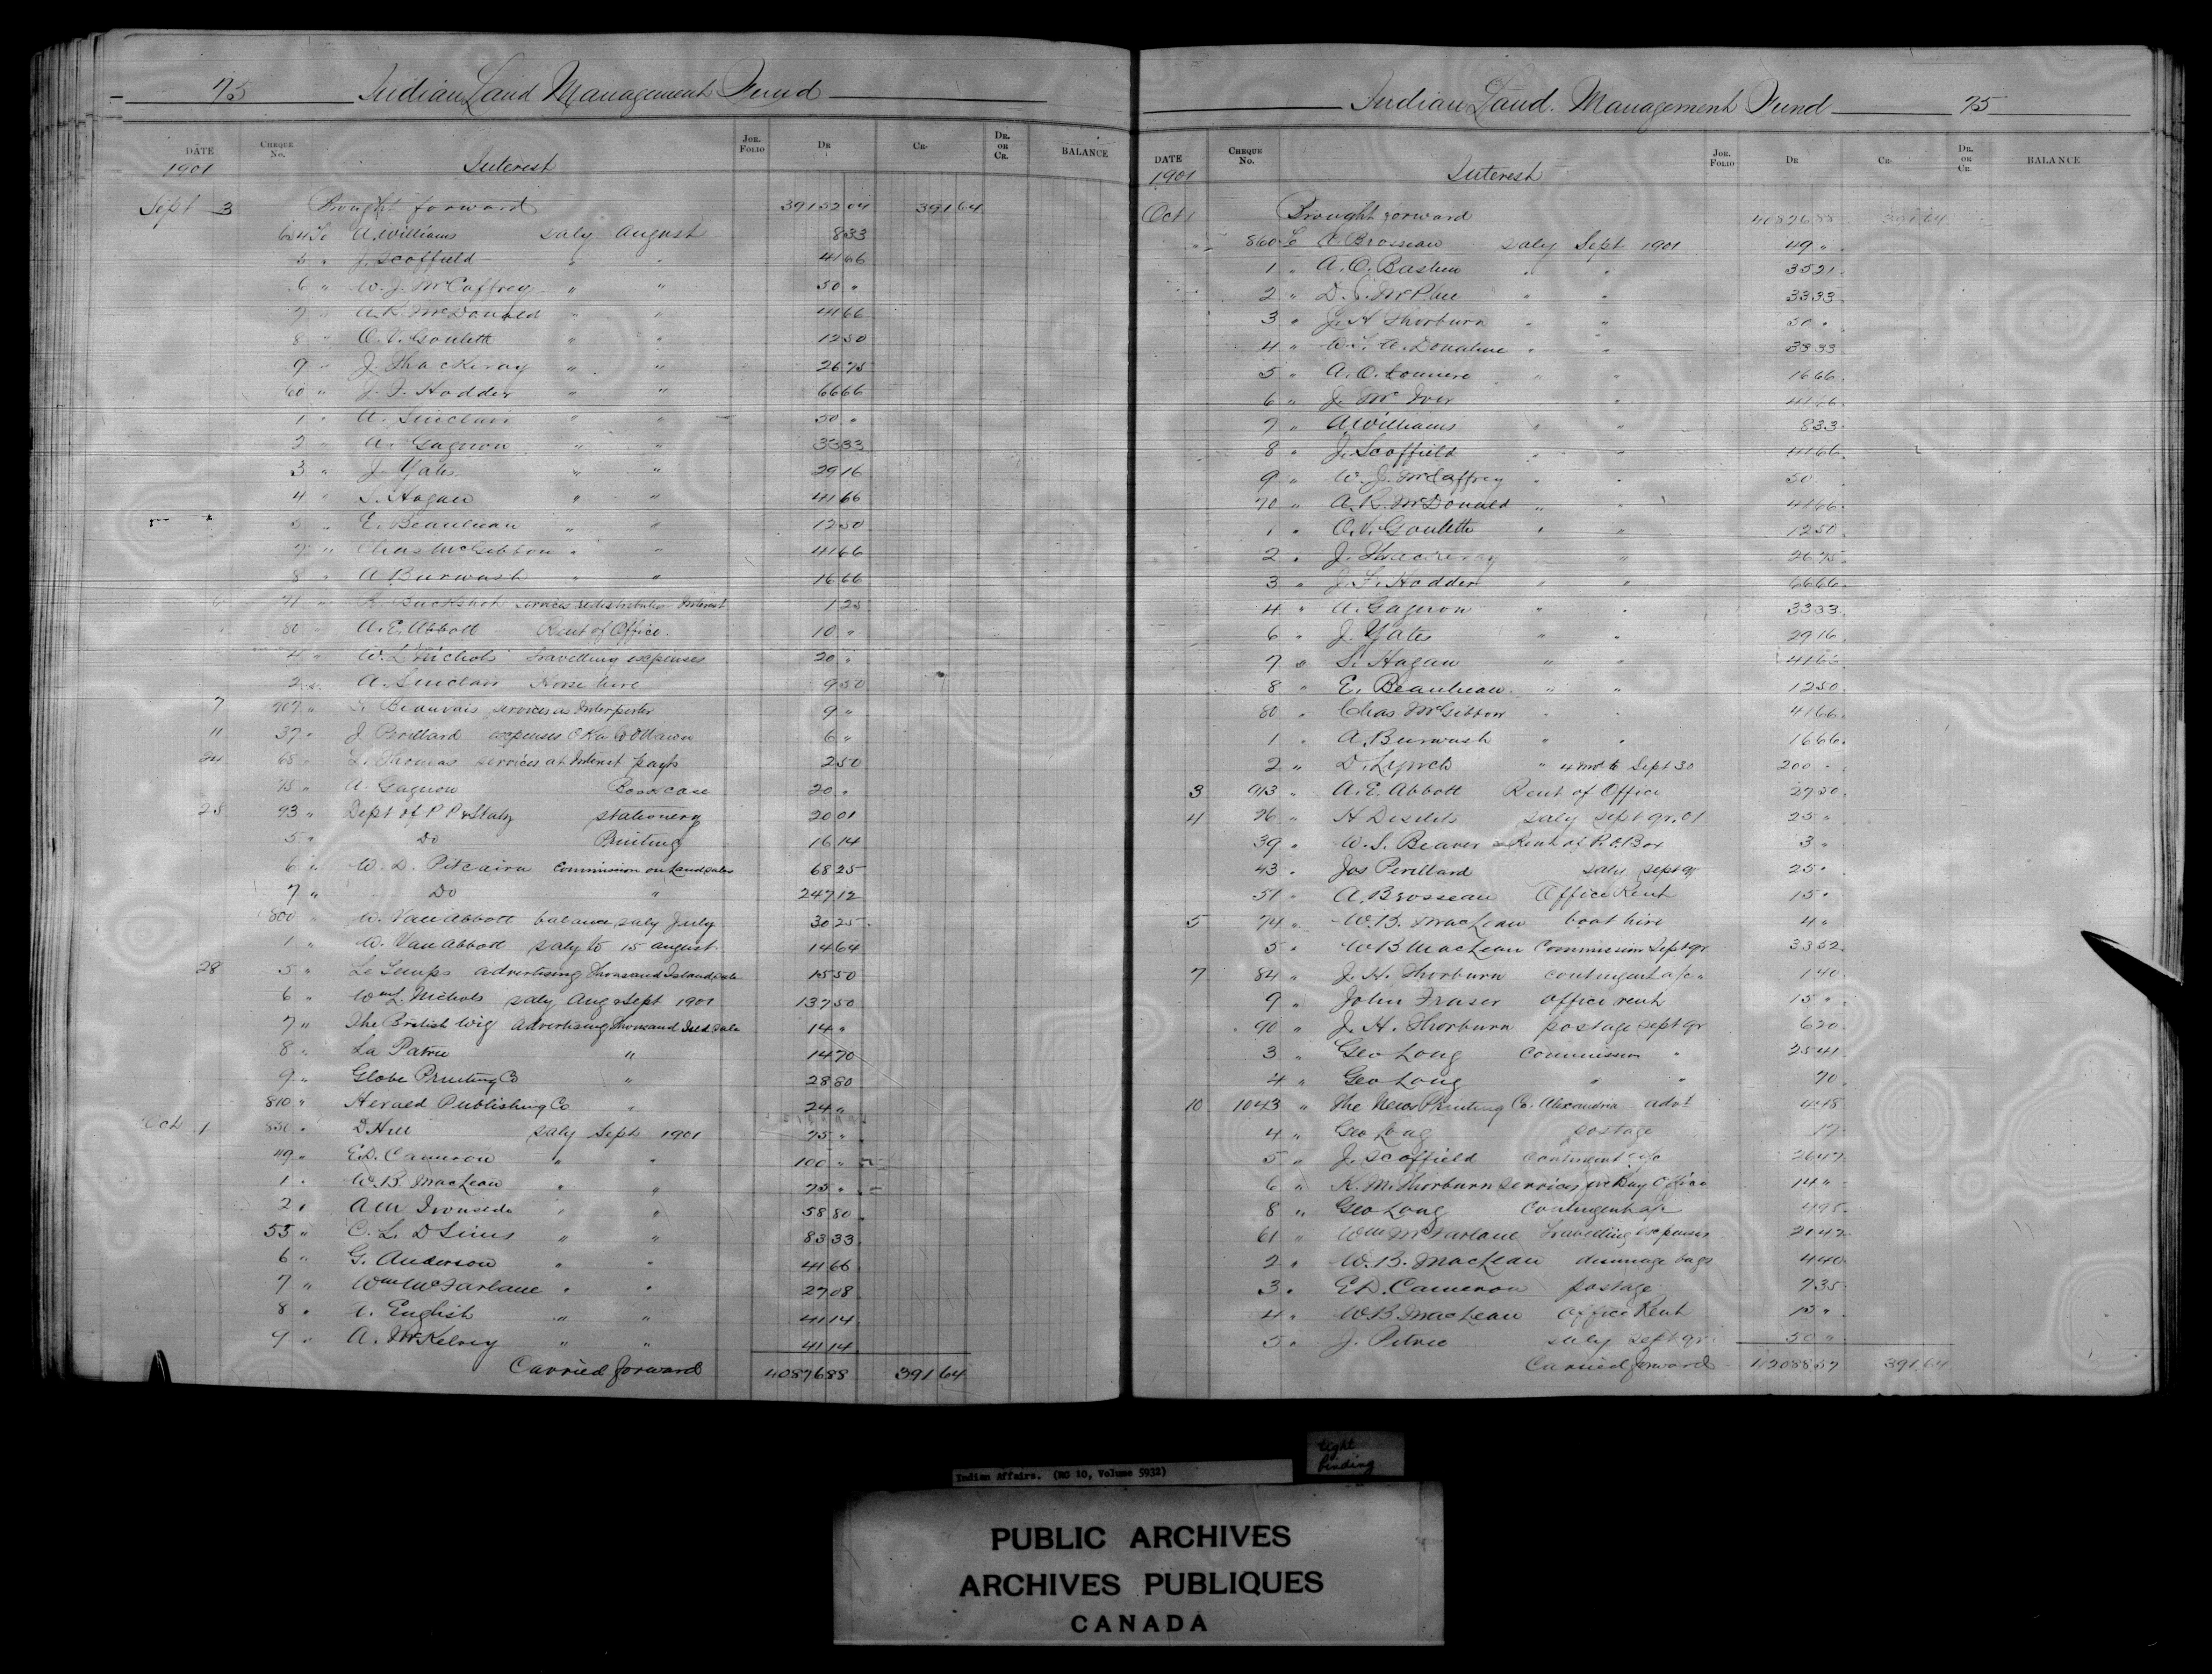 75 Indian Land Management Fund
DATE CHEQUE No. JOR. FOLIO DR CR. DR. OR CR. BALANCE
1901 Interest
Sept 3 Brought forward 39152 04 391 64
654 To A. Williams saly August 8 33
5 " J. Scoffield " " 41 66
6 " W. J. McCaffrey " " 50 "
7 " A. R. McDonald " " 41 66
8 " O. V. Goulett " " 12 50
9 " J. Thackeray " " 26 75
60 " J. F. Hodder " " 66 66
1 " A. Sinclair " " 50 "
2 " A. Gagnon " " 33 33
3 " J. Yates " " 29 16
4 " S. Hagan " " 41 66
5 " E. Beaulieau " " 12 50
7 " Chas McGibbon " " 41 66
8 " A Burwash " " 16 66
6 71 " Buckshot services redistribution Interest 1 25
" 80 " A. E. Abbott Rent of Office 10 "
" W. L. Nichols Travelling expenses 20 "
2 " A. Sinclair Horse hire 9 50
7 707 " Beauvais services as Interpreter 9 "
11 37 " J Perillard expenses Oka to Ottawa 6 "
24 68 " L. Thomas services at Interest payts 2 50
75 " A. Gagnon Bookcase 20 "
25 93 " Dept of P P & Staty stationery 20 01
5 " Do Printing 16 14
6 " W. D. Pitcairn Commission on Land sales 68 25
7 " Do " 247 12
800 " W. Van Abbott balance saly July 30 25
1 " W. Van Abbott saly to 15 august 14 64
28 5 " Le Temps advertising Thousand Island sale 15 50
6 " Wm L. Nichols saly Aug & Sept 1901 137 50
7 " The British Wig Advertising Thousand Isld sale 14 "
8 " La Patrie " 14 70
9 " Globe Printing Co " 28 80
810 " Herald Publishing Co " 24 "
Oct 1 850 " D Hill saly Sept 1901 75 "
49 " E.D. Cameron " " 100 "
1 " W. B MacLean " " 75 "
2 " A M Ironside " " 58 80
55 " C. L. D Sims " " 83 33
6 " G. Anderson " " 41 66
7 " Wm McFarlane " " 27 08
8 " A. English " " 41 14
9 " A. McKelvey " " 41 14
Carried forward 40876 88 391 64
Indian Land. Management Fund 75
DATE CHEQUE No. JOR. FOLIO DR CR. DR. OR CR. BALANCE
1901 Interest
Oct 1 Brought forward 40876 88 391 64
" 860 To A. Brosseau saly Sept 1901 49 "
1 " A. O. Bastien " " 35 21
2 " D. McPhee " " 33 33
3 " J. H Thorburn " " 50 "
4 " A. Donahue " " 33 33
5 " A. O. " " 16 66
6 " J. McIver " 41 66
7 " A Williams " " 8 33
8 " J. Scoffield " " 41 66
9 " W. J. McCaffrey " " 50
70 " A. R. McDonald " " 41 66
1 " O. V. Goulette " " 12 50
2 " J. Thackeray " 26 75
3 " J. F. Hodder " " 66 66
4 " A. Gagnon " " 33 33
6 " J. Yates " " 29 16
7 " S. Hagan " " 41 66
8 " E. Beaulieau " " 12 50
80 " Chas McGibbon " " 41 66
1 " A. Burwash " " 16 66
2 " D. Lynch " 4 mos to Sept 30 200 "
3 913 " A. E. Abbott Rent of Office 27 50
4 26 " H Desilets saly sept qr. 01 25 "
39 " W. S. Beaver Rent of P. O. Box 3 "
43 " Jos Perillard saly sept qr 25 "
51 " A. Brosseau Office Rent 15 "
5 74 " W. B. MacLean boat hire 4 "
5 " W B MacLean Commission Sept qr 33 52
7 84 " J. H. Thorburn contingent a/c " 1 40
9 " John Fraser office rent 15 "
90 " J. H. Thorburn postage sept qr 6 50
3 " Geo Long Commission " 25 41
4 " Geo Long " " 70
10 1043 " The News Printing Co. Alexandria advt 4 48
4 " Geo Long postage 17
5 " J. Scoffield Contingent a/c 26 47
6 " K. M. Thorburn services Office 14 "
8 " Geo Long Contingent a/c 4 95
61 " Wm McFarlane Travelling expenses 21 42
2 " W. B. MacLean bags 4 40
3 " E D. Cameron postage 7 35
4 " W B MacLean Office Rent 15 "
5 " J. Petrie saly Sept qr 50 "
Carried forward 42088 57 391 64
Indian Affairs. (RG 10, Volume 5932)
tight
binding
PUBLIC ARCHIVES
ARCHIVES PUBLIQUES
CANADA